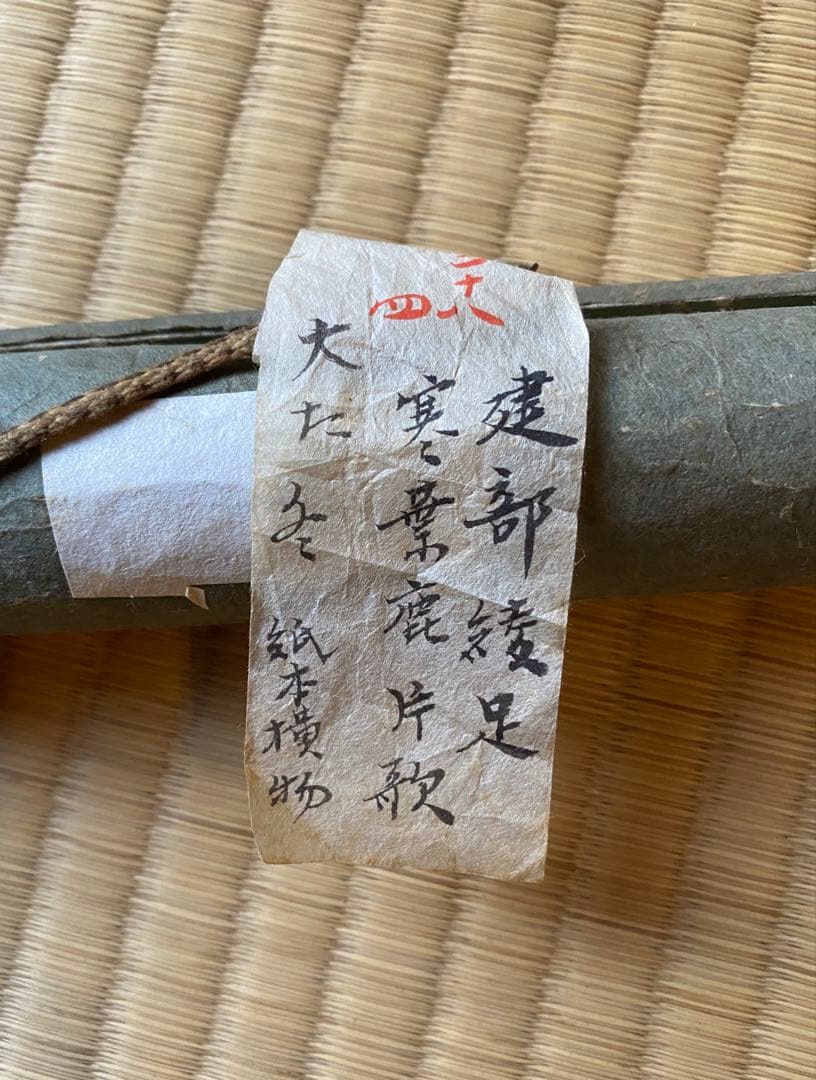 十八
四
建部綾足
寒葉鹿 片歌
大た 冬 紙本横物